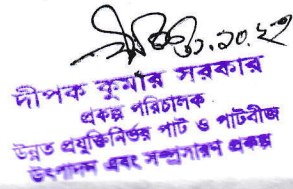 দীপক কুমার সরকার
প্রকল্প পরিচালক
উন্নত প্রযুক্তিনির্ভর পাট ও পাটবীজ
উৎপাদন এবং সম্প্রসারণ প্রকল্প